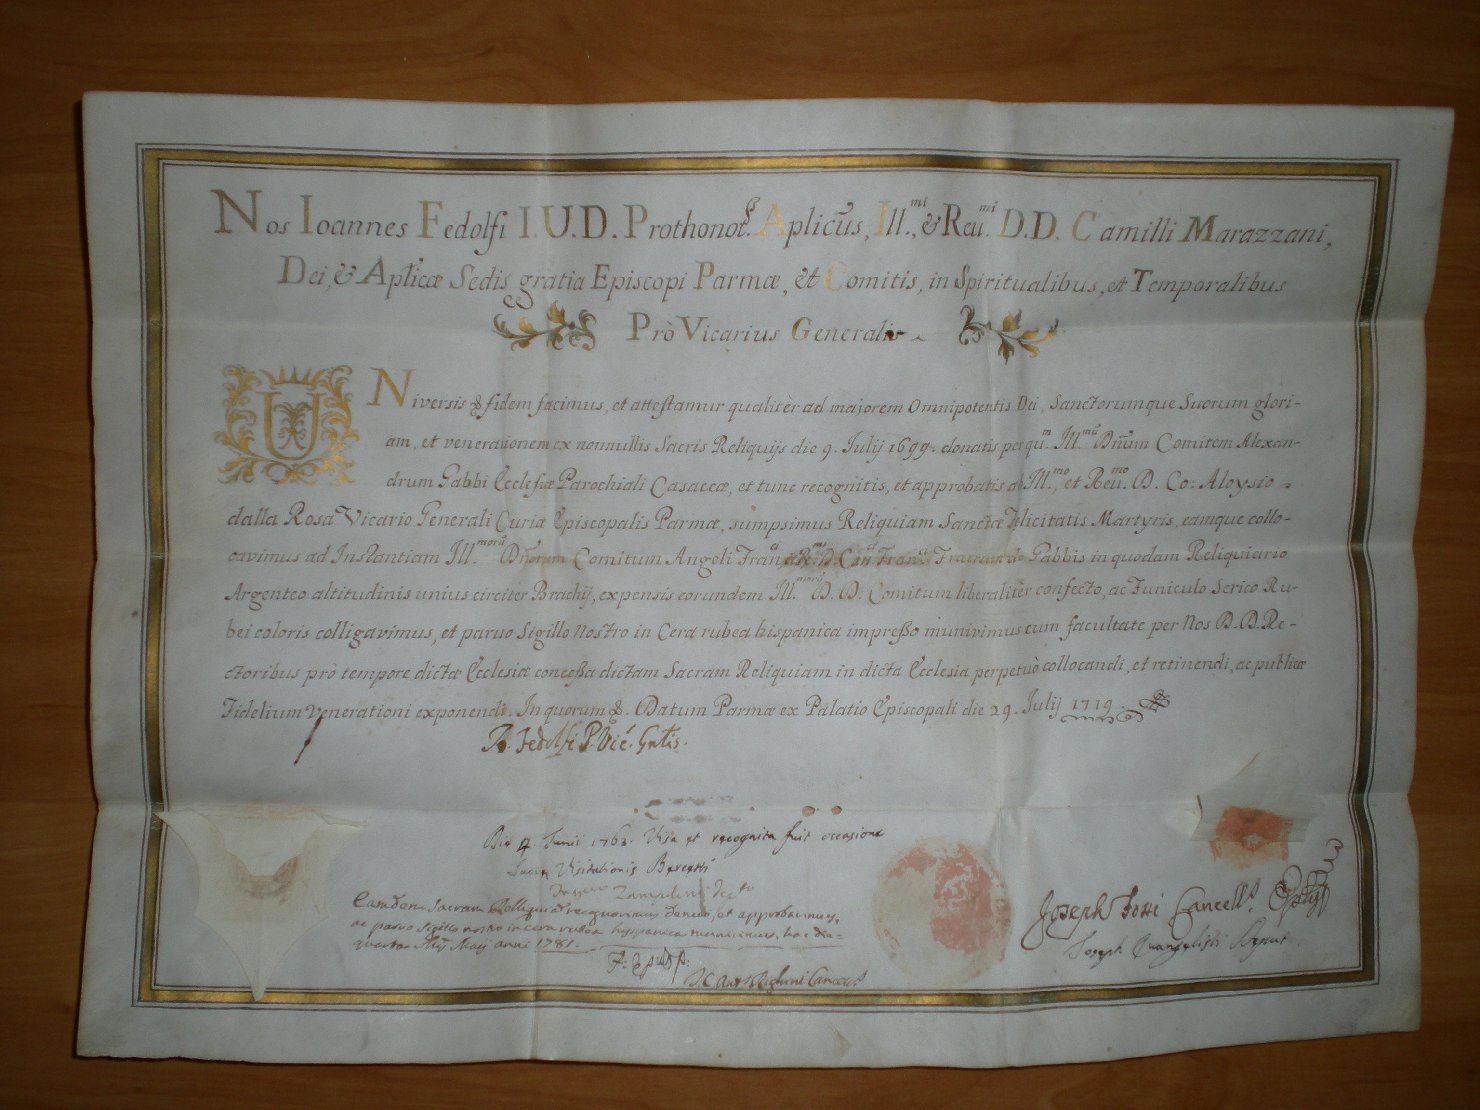 Nos Ioannes Fedolfi I.U.D. Prothonot.ʳ Aplicūs, Ill.ᵐⁱ, & Reu.ᵐⁱ D.D. Camilli Marazzani,
Dei, & Aplicæ Sedis gratia Episcopi Parmæ, et Comitis, in Spiritualibus, et Temporalibus
Prò Vicarius Generalis
UNiversis & fidem facimus, et attestamur qualitèr ad majorem Omnipotentis Dei, Sanctorumque Suorum glori-
am, et venerationem ex nonnullis Sacris Reliquijs die 9. Julij 1699. donatis per quᵐ. Ill.ᵐᵘ Dñum Comitem Alexan-
drum Gabbi Ecclesiæ Parochiali Casaccæ, et tunc recognitis, et approbatis a Ill.ᵐᵒ, et Reu.ᵐᵒ D. Co: Aloysio
dalla Rosa Vicario Generali Curiæ Episcopalis Parmæ, sumpsimus Reliquiam Sanctæ Felicitatis Martyris, eamque collo-
cavimus ad Instantiam Ill.ᵐᵒʳᵘ Dñorum Comitum Angeli Fran.ᶜⁱ Fratrum de Gabbis in quodam Reliquiario
Argenteo altitudinis unius circiter Brachij, expensis eorundem Ill.ᵐᵒʳᵘ D. D. Comitum liberalitèr confecto, ac Funiculo Serico Ru-
bei coloris colligavimus, et paruo Sigillo Nostro in Cera rubea hispanica impresso munivimus cum facultate per Nos D.D. Re-
ctoribus prò tempore dictæ Ecclesiæ concessa dictam Sacram Reliquiam in dicta Ecclesia perpetuò collocandi, et retinendi, ac publicæ
Fidelium Venerationi exponendi. In quorum &. Datum Parmæ ex Palatio Episcopali die 29. Julij 1719.
Fedolfi P. Vic. Gnlis.
Die 4 Junii 1763. Visa et recognita fuit occasione
Sacræ Visitationis
Eamdem Sacram Relliquiam recognovimus denuo, et approbavimus,
ac parvo sigillo nostro in cera rubea hispanica munivimus, hac die
quarta Maij anni 1781.
Joseph Tossi Cancell.ˢ Eplis
Joseph Evangelisti